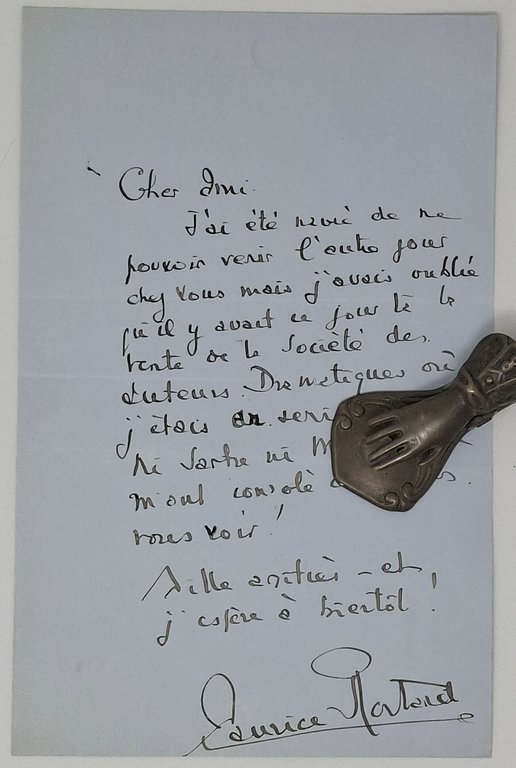 Cher Ami.
J'ai été navré de ne
pouvoir venir l'autre jour
chez vous mais j'avais oublié
qu'il y avait ce jour là la
vente de la Société des
Auteurs Dramatiques où
j'étais de
Ni Sartre ni
m'ont consolé
vous voir !
Mille amitiés - et
j'espère à bientôt !
Maurice Rostand